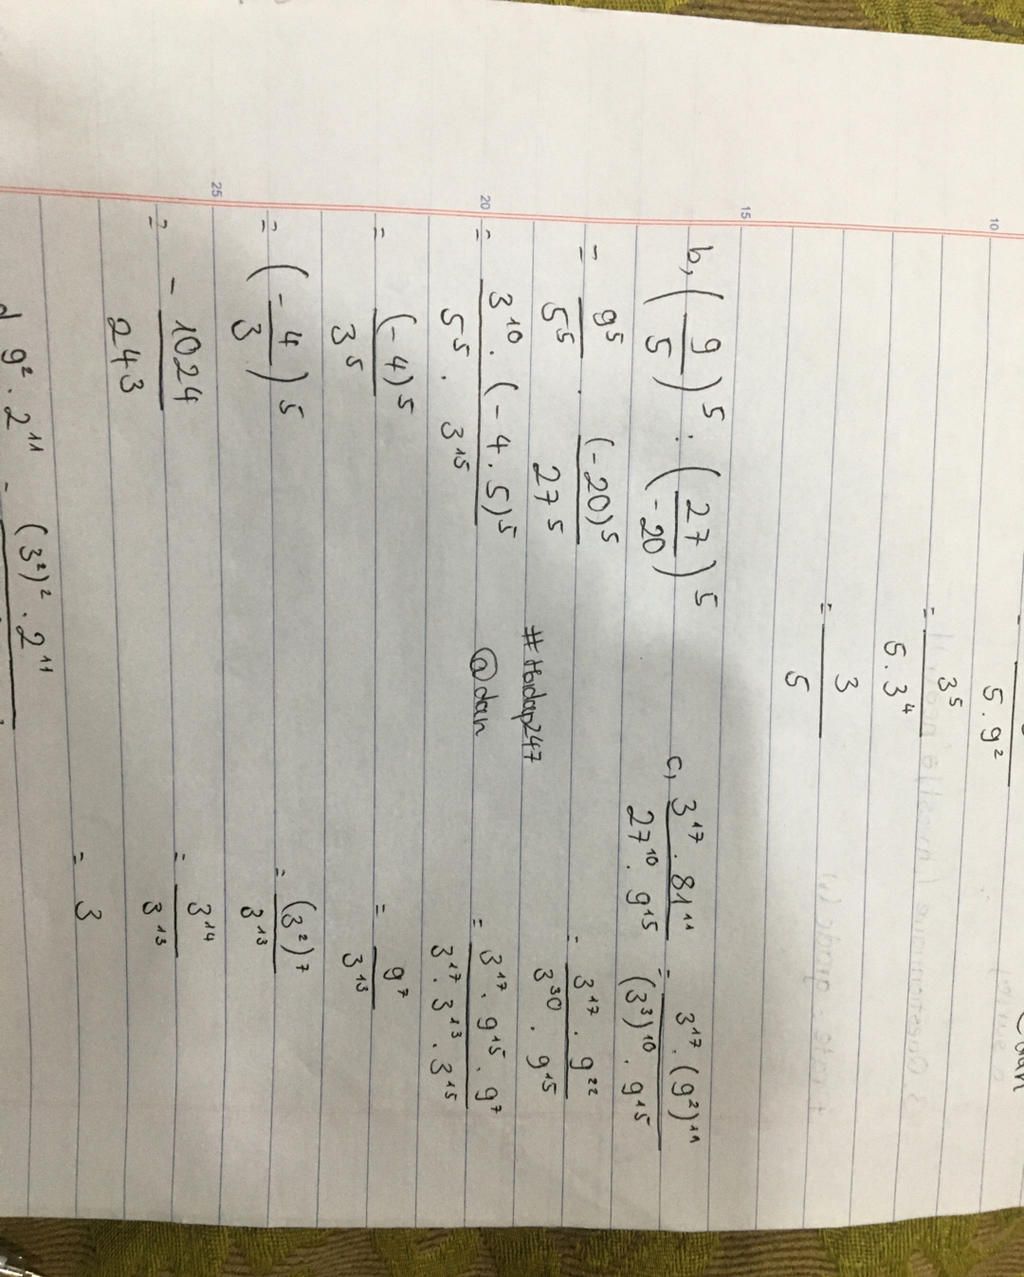 5 . 9²
= 3⁵ / 5 . 3⁴
= 3 / 5
b, (9/5)⁵ : (27/-20)⁵
= 9⁵/5⁵ . (-20)⁵/27⁵
= 3¹⁰ . (-4 . 5)⁵ / 5⁵ . 3¹⁵
= (-4)⁵ / 3⁵
= (-4/3)⁵
= - 1024/243
#Hoidap247
@dan
c, 3¹⁷ . 81¹¹ / 27¹⁰ . 9¹⁵ = 3¹⁷ . (9²)¹¹ / (3³)¹⁰ . 9¹⁵
= 3¹⁷ . 9²² / 3³⁰ . 9¹⁵
= 3¹⁷ . 9¹⁵ . 9⁷ / 3¹⁷ . 3¹³ . 3¹⁵
= 9⁷ / 3¹³
= (3²)⁷ / 3¹³
= 3¹⁴ / 3¹³
= 3
d 9² . 2¹¹ = (3²)² . 2¹¹
10
15
20
25